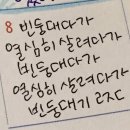 8 빈둥대다가
열심히 살려다가
빈둥대다가
열심히 살려다가
빈둥대기 ROSE